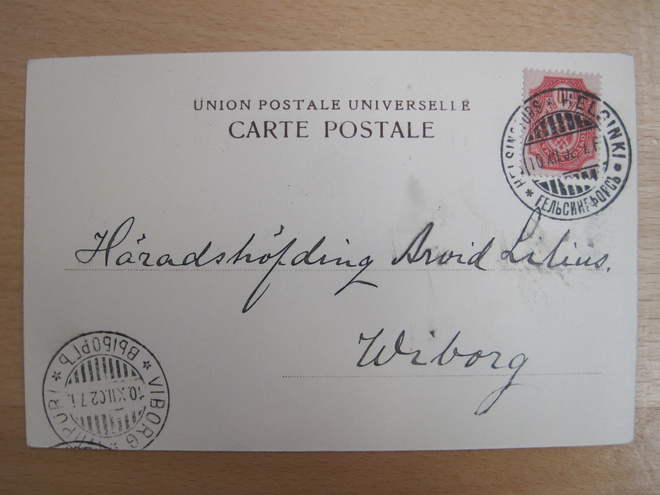 UNION POSTALE UNIVERSELLE
CARTE POSTALE
HELSINGFORS * HELSINKI * ГЕЛЬСИНГФОРСЪ *
Häradshöfding Arvid Lilius.
Wiborg
ВЫБОРГЪ * VIBORG * VIIPURI *
10.XII.02.7